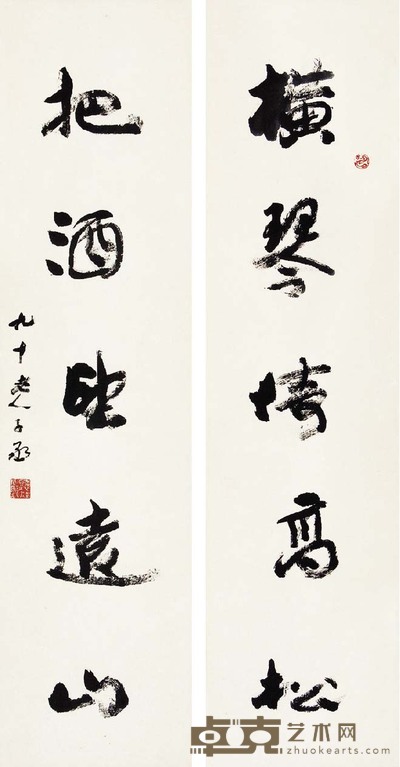 橫琴倚高松
把酒望遠山
九十老人子丞
卓克艺术网
zhuokearts.com